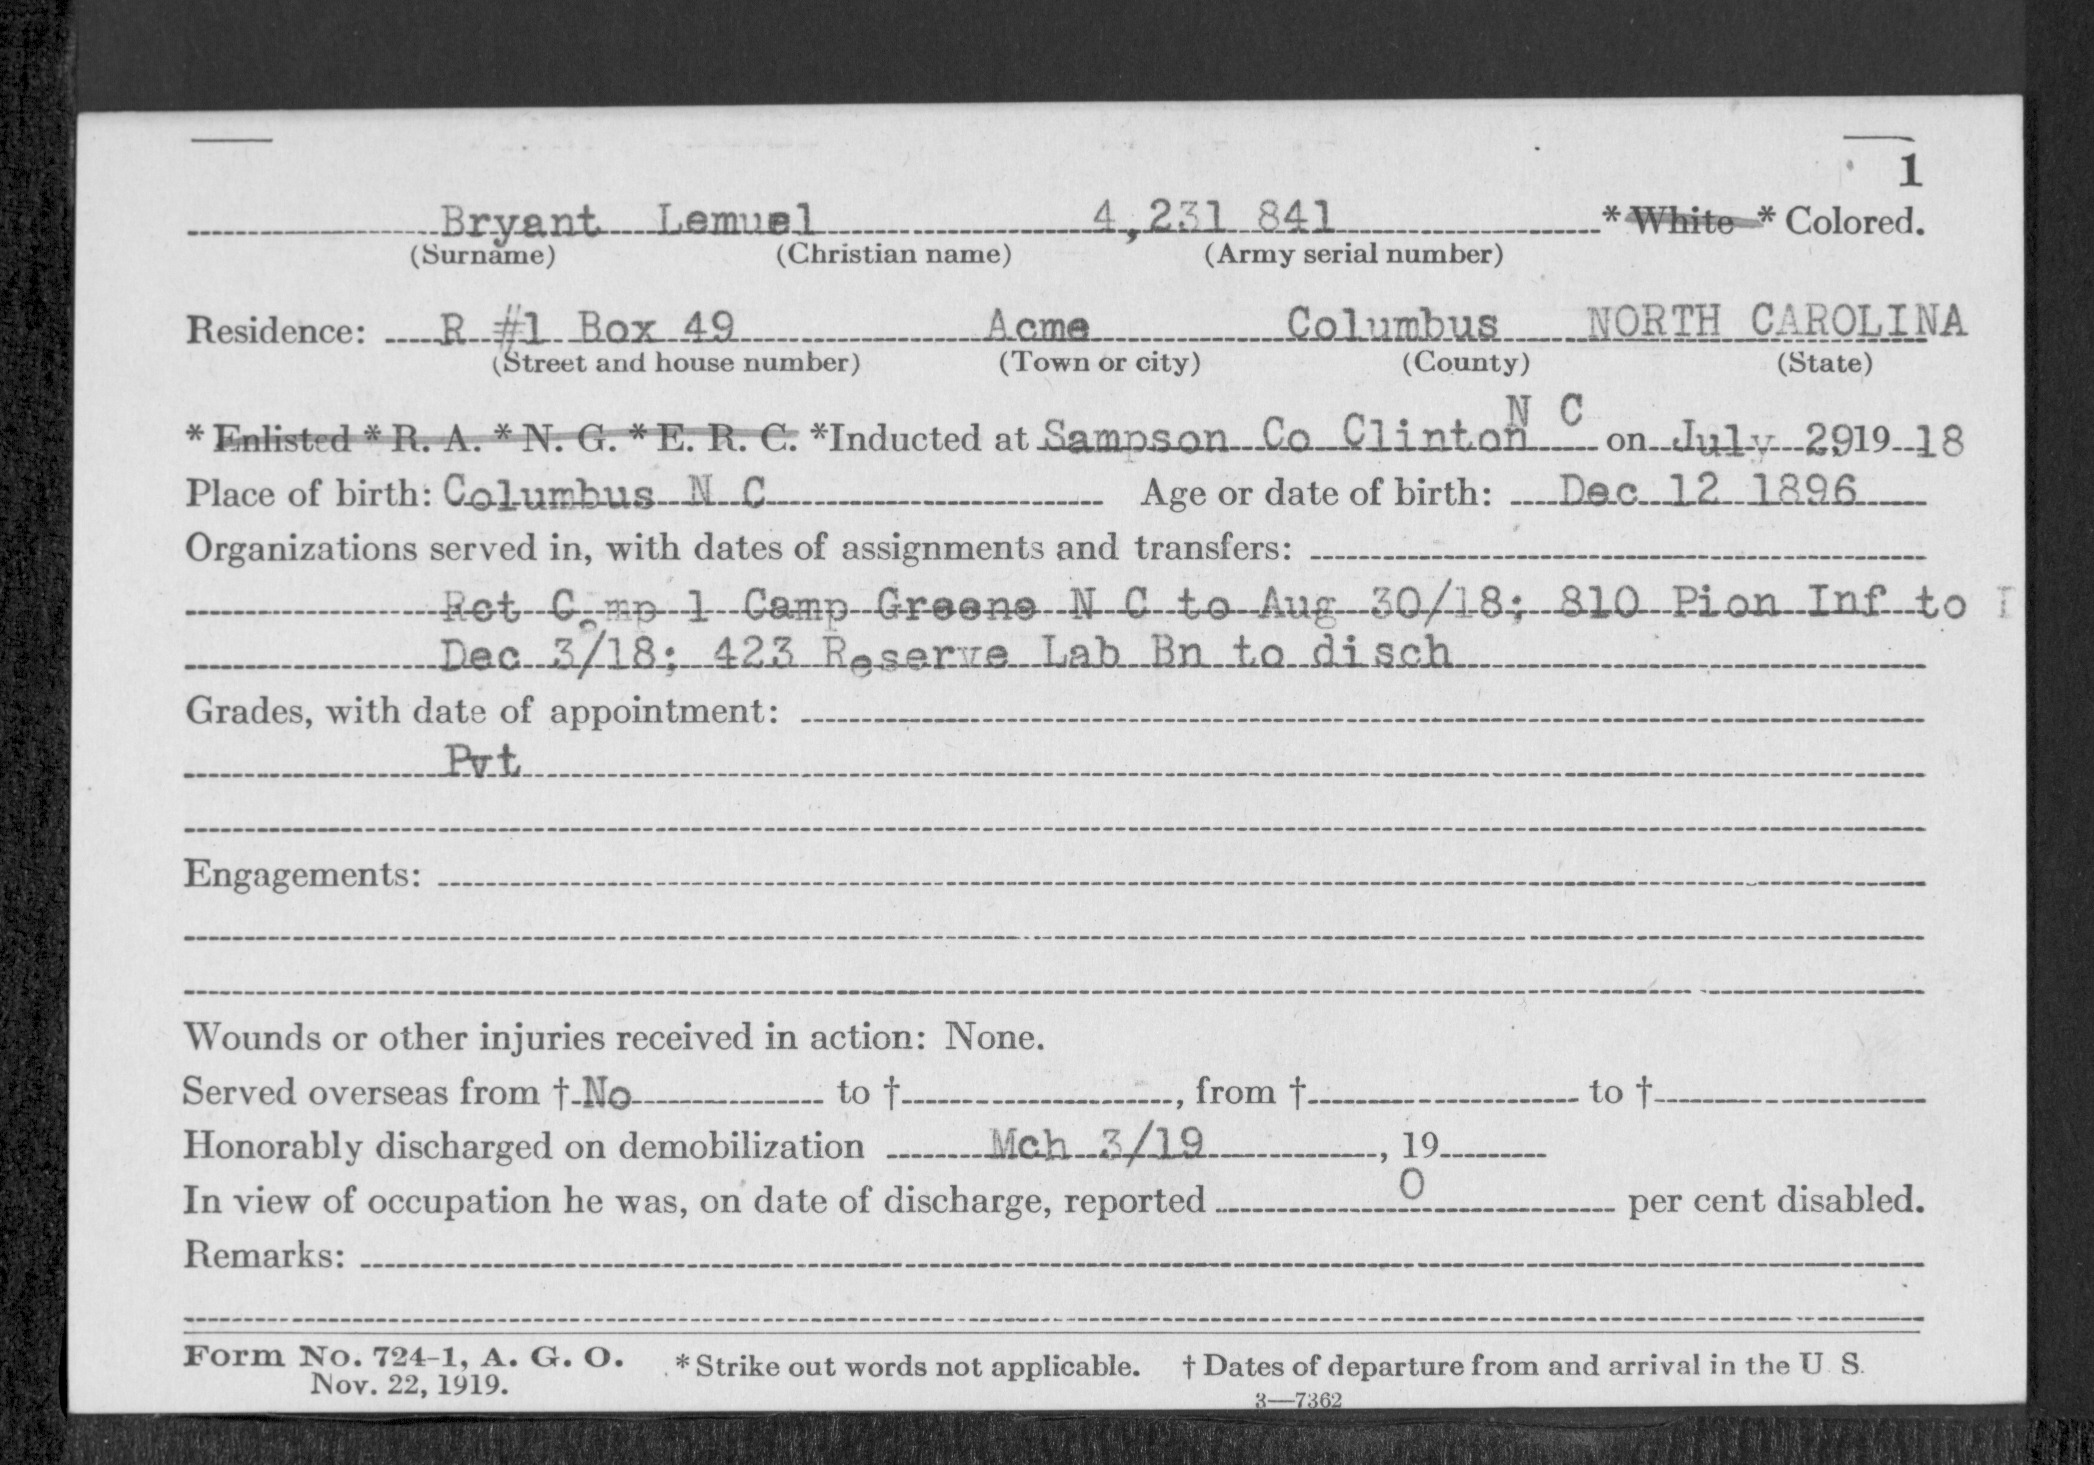 1
Bryant Lemuel 4,231 841 * White * Colored.
(Surname) (Christian name) (Army serial number)
Residence: R #1 Box 49 Acme Columbus NORTH CAROLINA
(Street and house number) (Town or city) (County) (State)
* Enlisted * R. A. * N. G. * E. R. C. *Inducted at Sampson Co Clinton N C on July 29 19 18
Place of birth: Columbus N C Age or date of birth: Dec 12 1896
Organizations served in, with dates of assignments and transfers:
Rct Comp 1 Camp Greene N C to Aug 30/18; 810 Pion Inf to D
Dec 3/18; 423 Reserve Lab Bn to disch
Grades, with date of appointment:
Pvt
Engagements:
Wounds or other injuries received in action: None.
Served overseas from † No to †, from † to †
Honorably discharged on demobilization Mch 3/19, 19
In view of occupation he was, on date of discharge, reported 0 per cent disabled.
Remarks:
Form No. 724-1, A. G. O. * Strike out words not applicable. † Dates of departure from and arrival in the U S.
Nov. 22, 1919.
3—7362